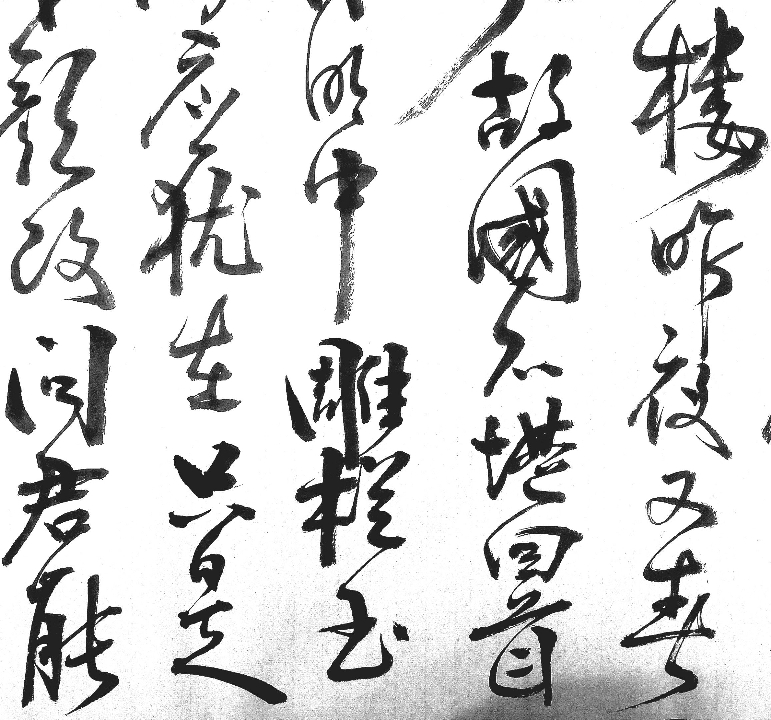 樓昨夜又東
故國不堪回首
明中雕欄玉
應猶在只是
顏改問君能